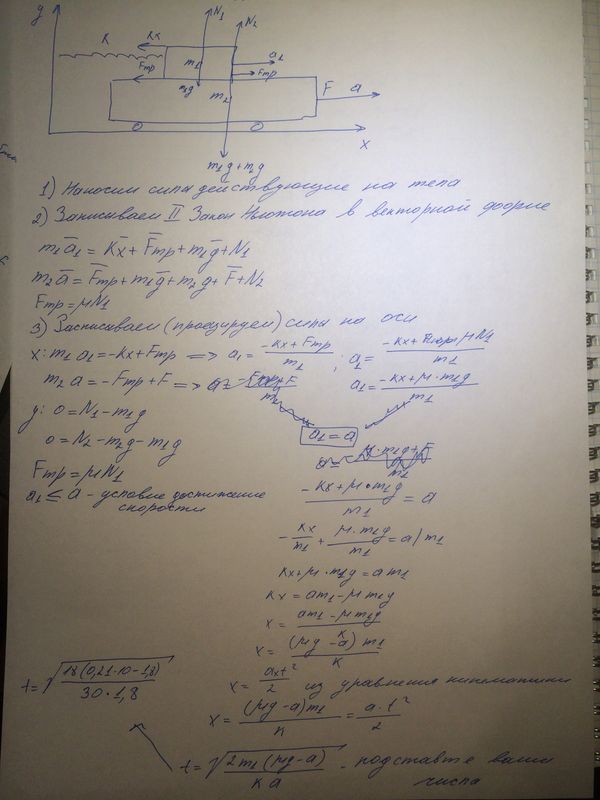 y
N1
N2
K
Kx
m1
a1
Fтр
Fтр
m1g
m2
F
a
x
m1g+m2g
1) Наносим силы действующие на тела
2) Записываем II Закон Ньютона в векторной форме
m1a̅1 = Kx̅ + F̅тр + m1g̅ + N̅1
m2a̅ = F̅тр + m1g̅ + m2g̅ + F̅ + N̅2
Fтр = μN1
3) Записываем (проецируем) силы на оси
x: m1a1 = -Kx + Fтр => a1 = (-Kx + Fтр)/m1 ; a1 = (-Kx + μN1)/m1
m2a = -Fтр + F => a1 = (-Kx + μ·m1g)/m1
y: 0 = N1 - m1g
0 = N2 - m2g - m1g
a1 = a
Fтр = μN1
a1 ≤ a - условие достижение
скорости
(-Kx + μ·m1g)/m1 = a
-Kx/m1 + μ·m1g/m1 = a | m1
Kx + μ·m1g = am1
Kx = am1 - μm1g
x = (am1 - μm1g)/K
x = (μg - a)m1/K
t = √(18(0,21·10-1,8)/30·1,8)
x = axt²/2 из уравнения кинематики
x = (μg - a)m1/K = a·t²/2
t = √(2m1(μg-a)/Ka) - подставте ваши
числа